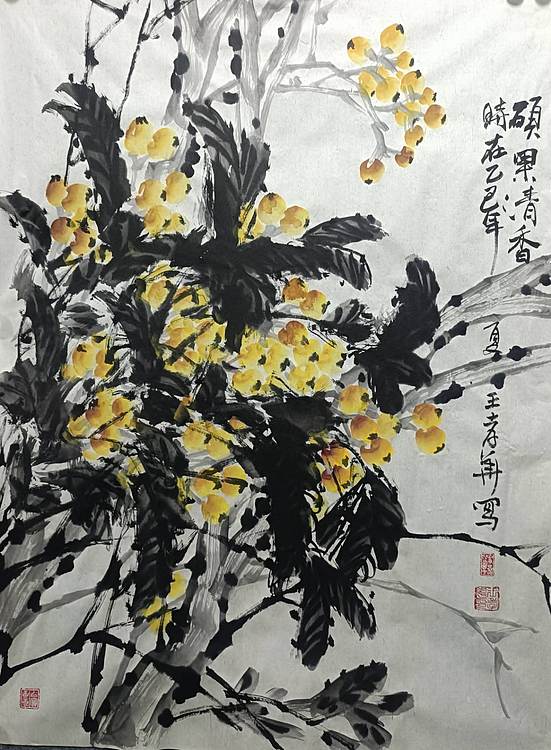 碩果清香
時在乙巳年
夏王孝華寫